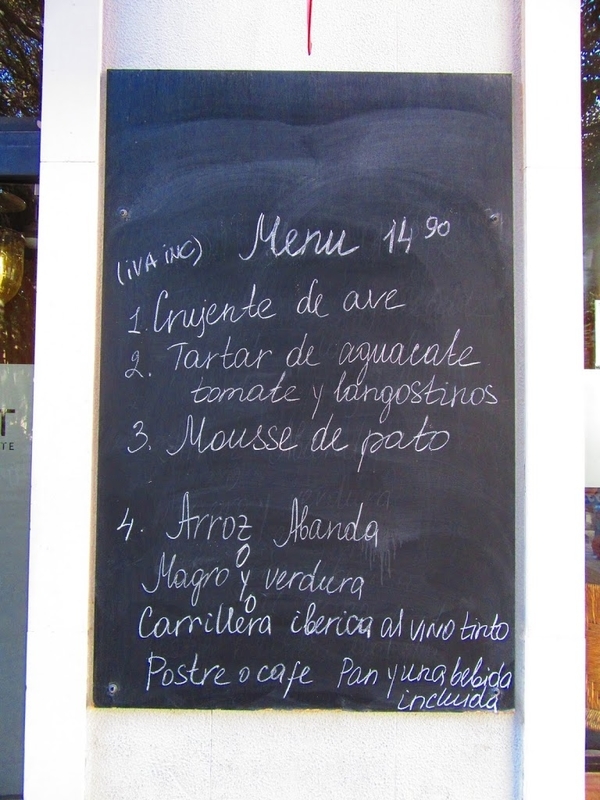 Menu 14 90
(iVA iNC)
1. Crujente de ave
2. Tartar de aguacate
tomate y langostinos
3. Mousse de pato
4. Arroz Abanda
o
Magro y verdura
o
Carrillera iberica al vino tinto
Postre o cafe Pan y una bebida
incluida
T
TE